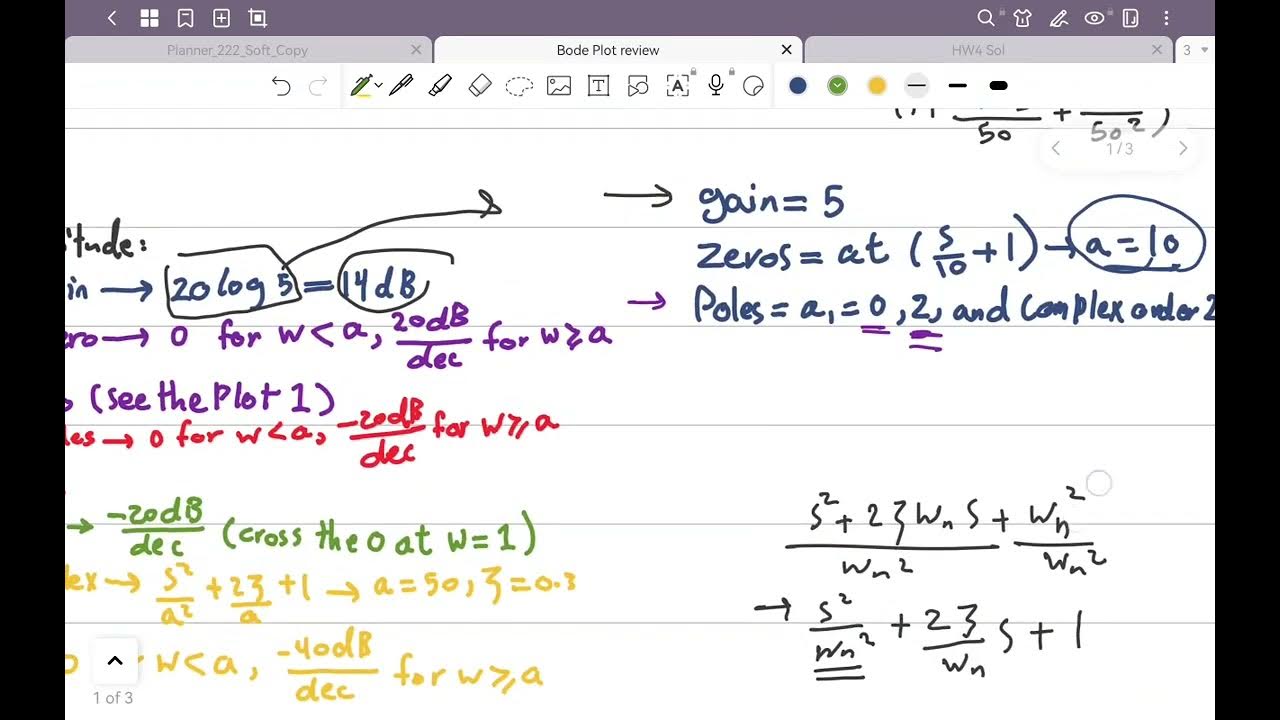 Planner_222_Soft_Copy
Bode Plot review
HW4 Sol
3
50 + 50² )
1/3
→ gain = 5
zeros = at (s/10 + 1) → a = 10
→ Poles = a, = 0, 2, and Complex order 2
itude:
in → 20 log 5 = 14 dB
ero → 0 for w < a, 20dB/dec for w ≥ a
(see the Plot 1)
les → 0 for w < a, -20dB/dec for w ≥ a
→ -20dB/dec (cross the 0 at w = 1)
lex → s²/a² + 2ζ/a + 1 → a = 50, ζ = 0.3
0 for w < a, -40dB/dec for w ≥ a
s² + 2ζ wn s + wn²
wn² wn²
→ s²/wn² + 2ζ/wn s + 1
1 of 3